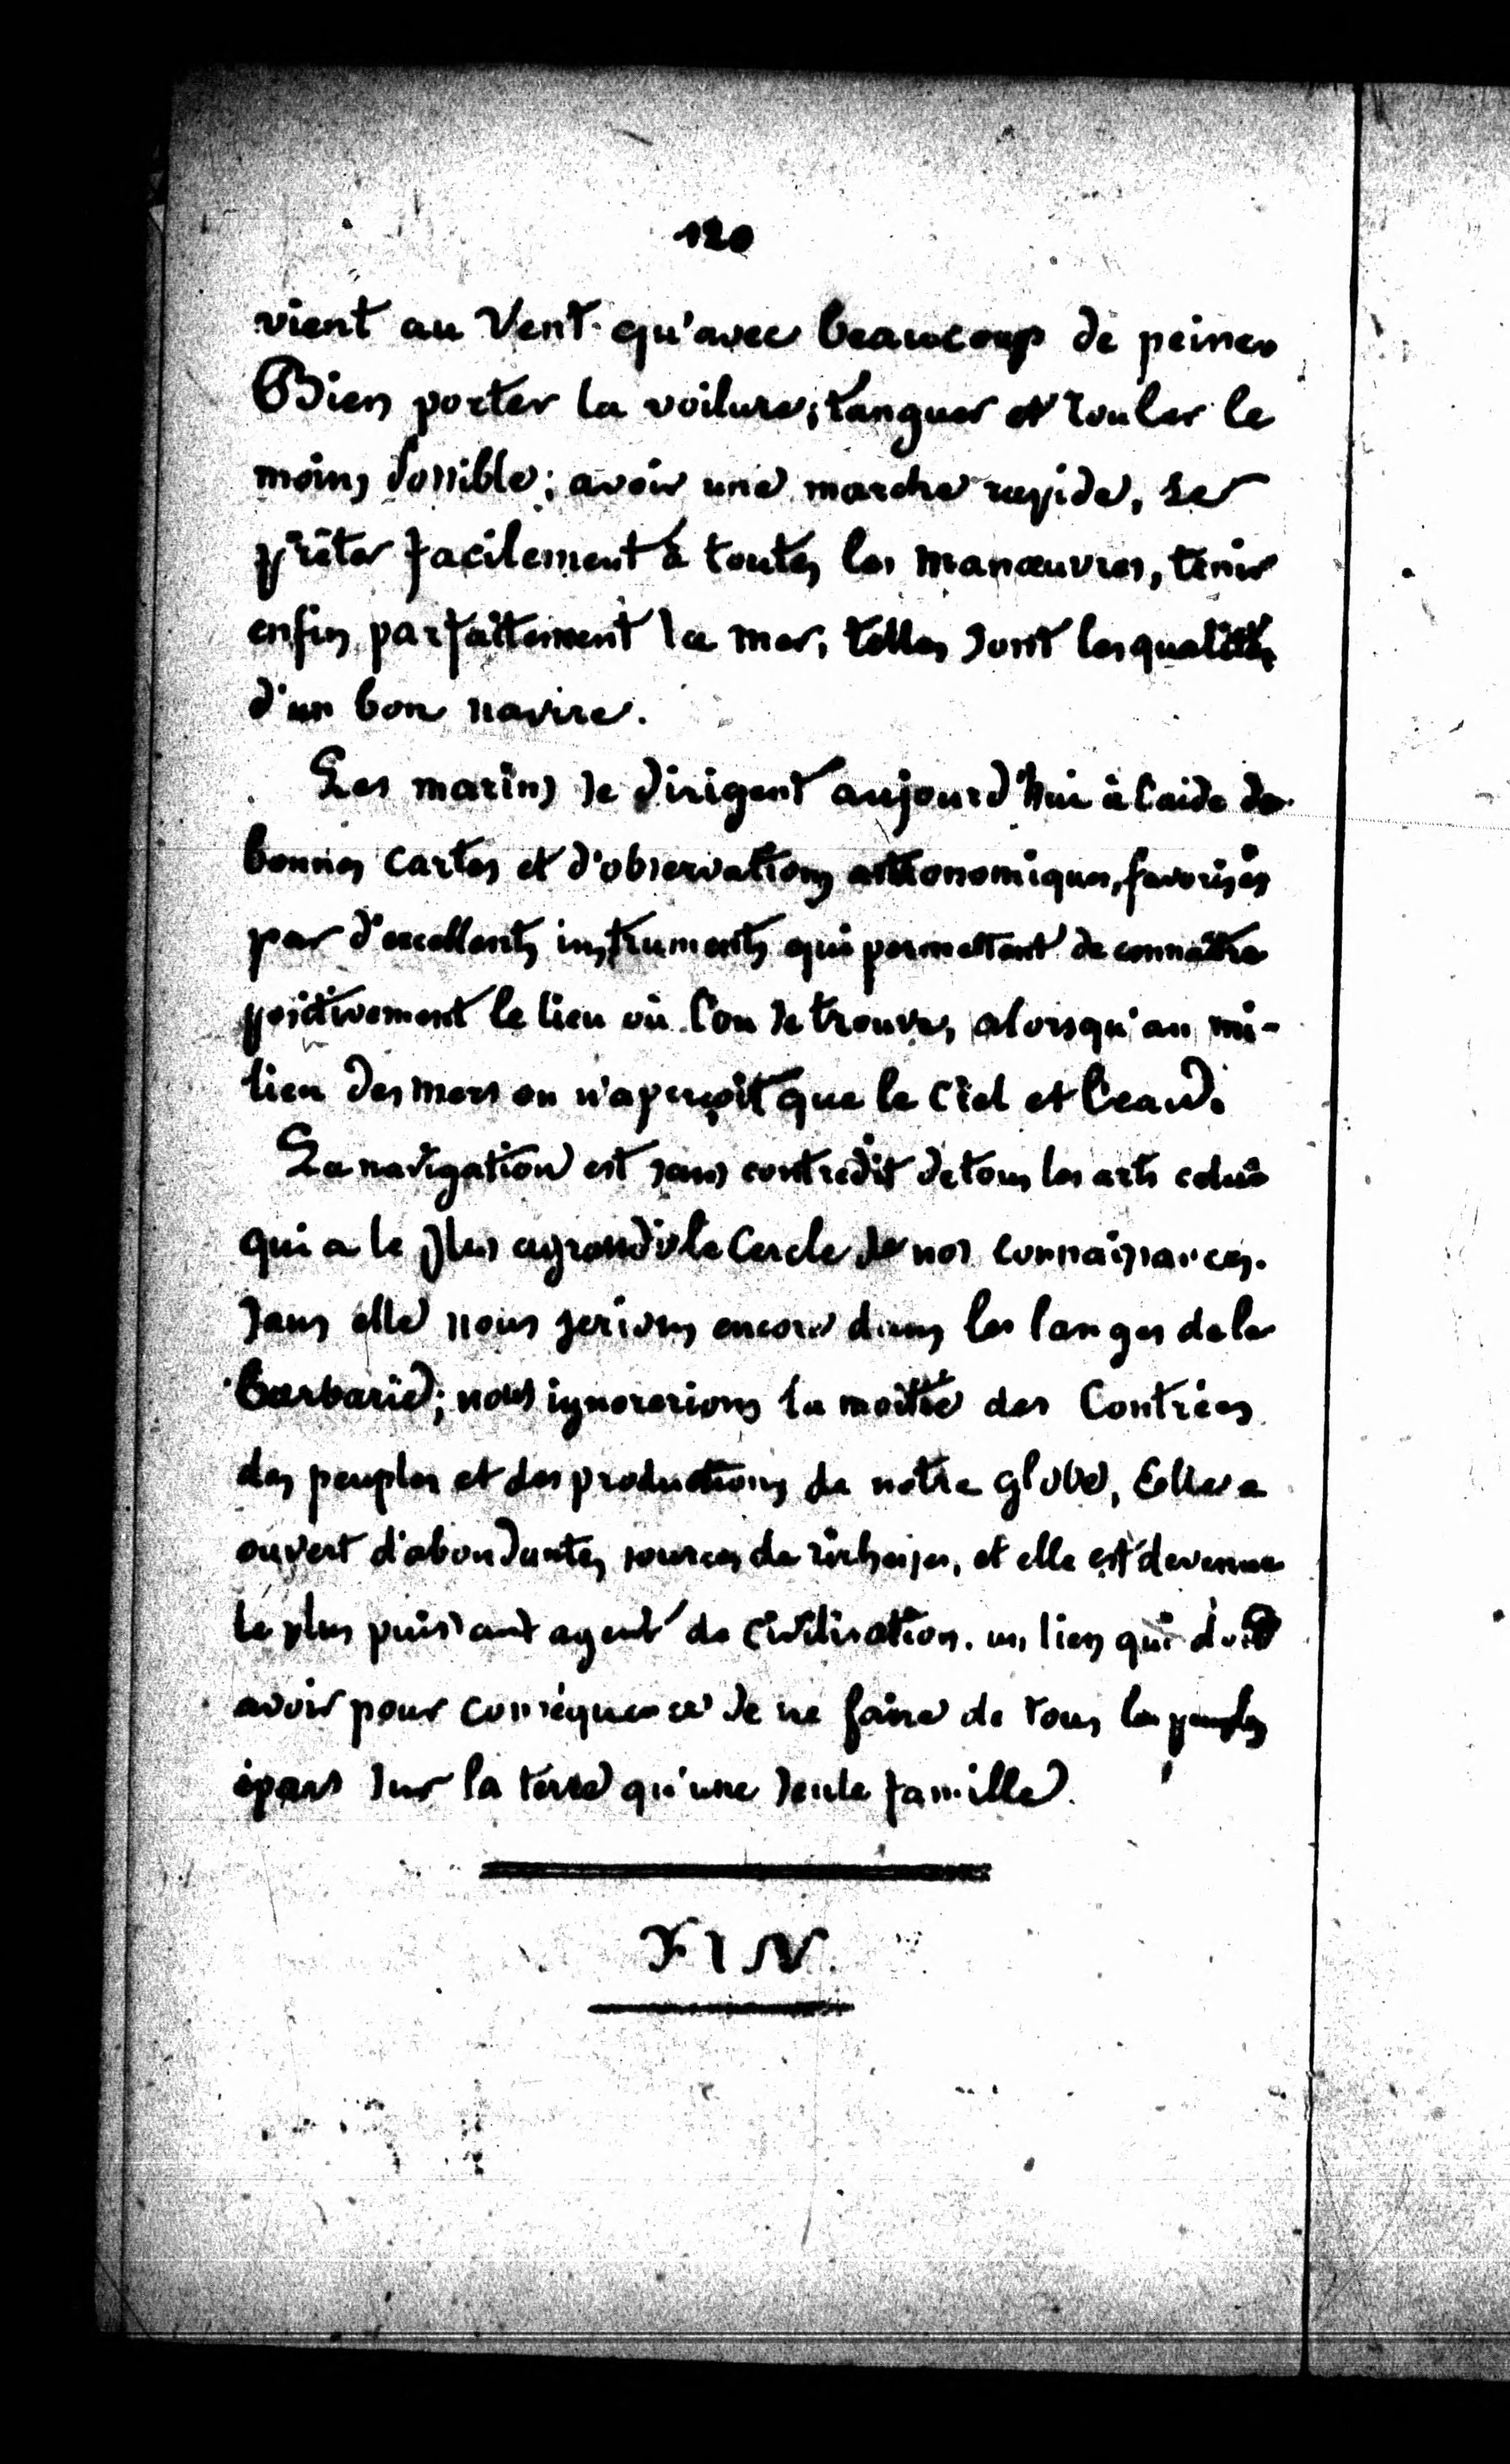 120
vient au Vent qu'avec beaucoup de peines
Bien porter la voilure; tanguer et rouler le
moins possible; avoir une marche rapide, se
prêter facilement à toutes les manœuvres, tenir
enfin parfaitement la mer, telles sont les qualités
d'un bon navire.
Les marins se dirigent aujourd'hui à l'aide de
bonnes cartes et d'observations astronomiques, favorisés
par d'excellents instruments qui permettent de connaître
positivement le lieu où l'on se trouve, alorsqu'au mi-
lieu des mers on n'aperçoit que le Ciel et l'eau.
La navigation est sans contredit de tous les arts celui
qui a le plus agrandi le Cercle de nos connaissances.
Sans elle nous serions encore dans les langes de la
Barbarie; nous ignorerions la moitié des Contrées
des peuples et des productions de notre globe, Elle a
ouvert d'abondantes sources de richesses, et elle est devenue
le plus puissant agent de Civilisation. un lien qui doit
avoir pour conséquence de ne faire de tous les peuples
épars sur la terre qu'une seule famille.
FIN